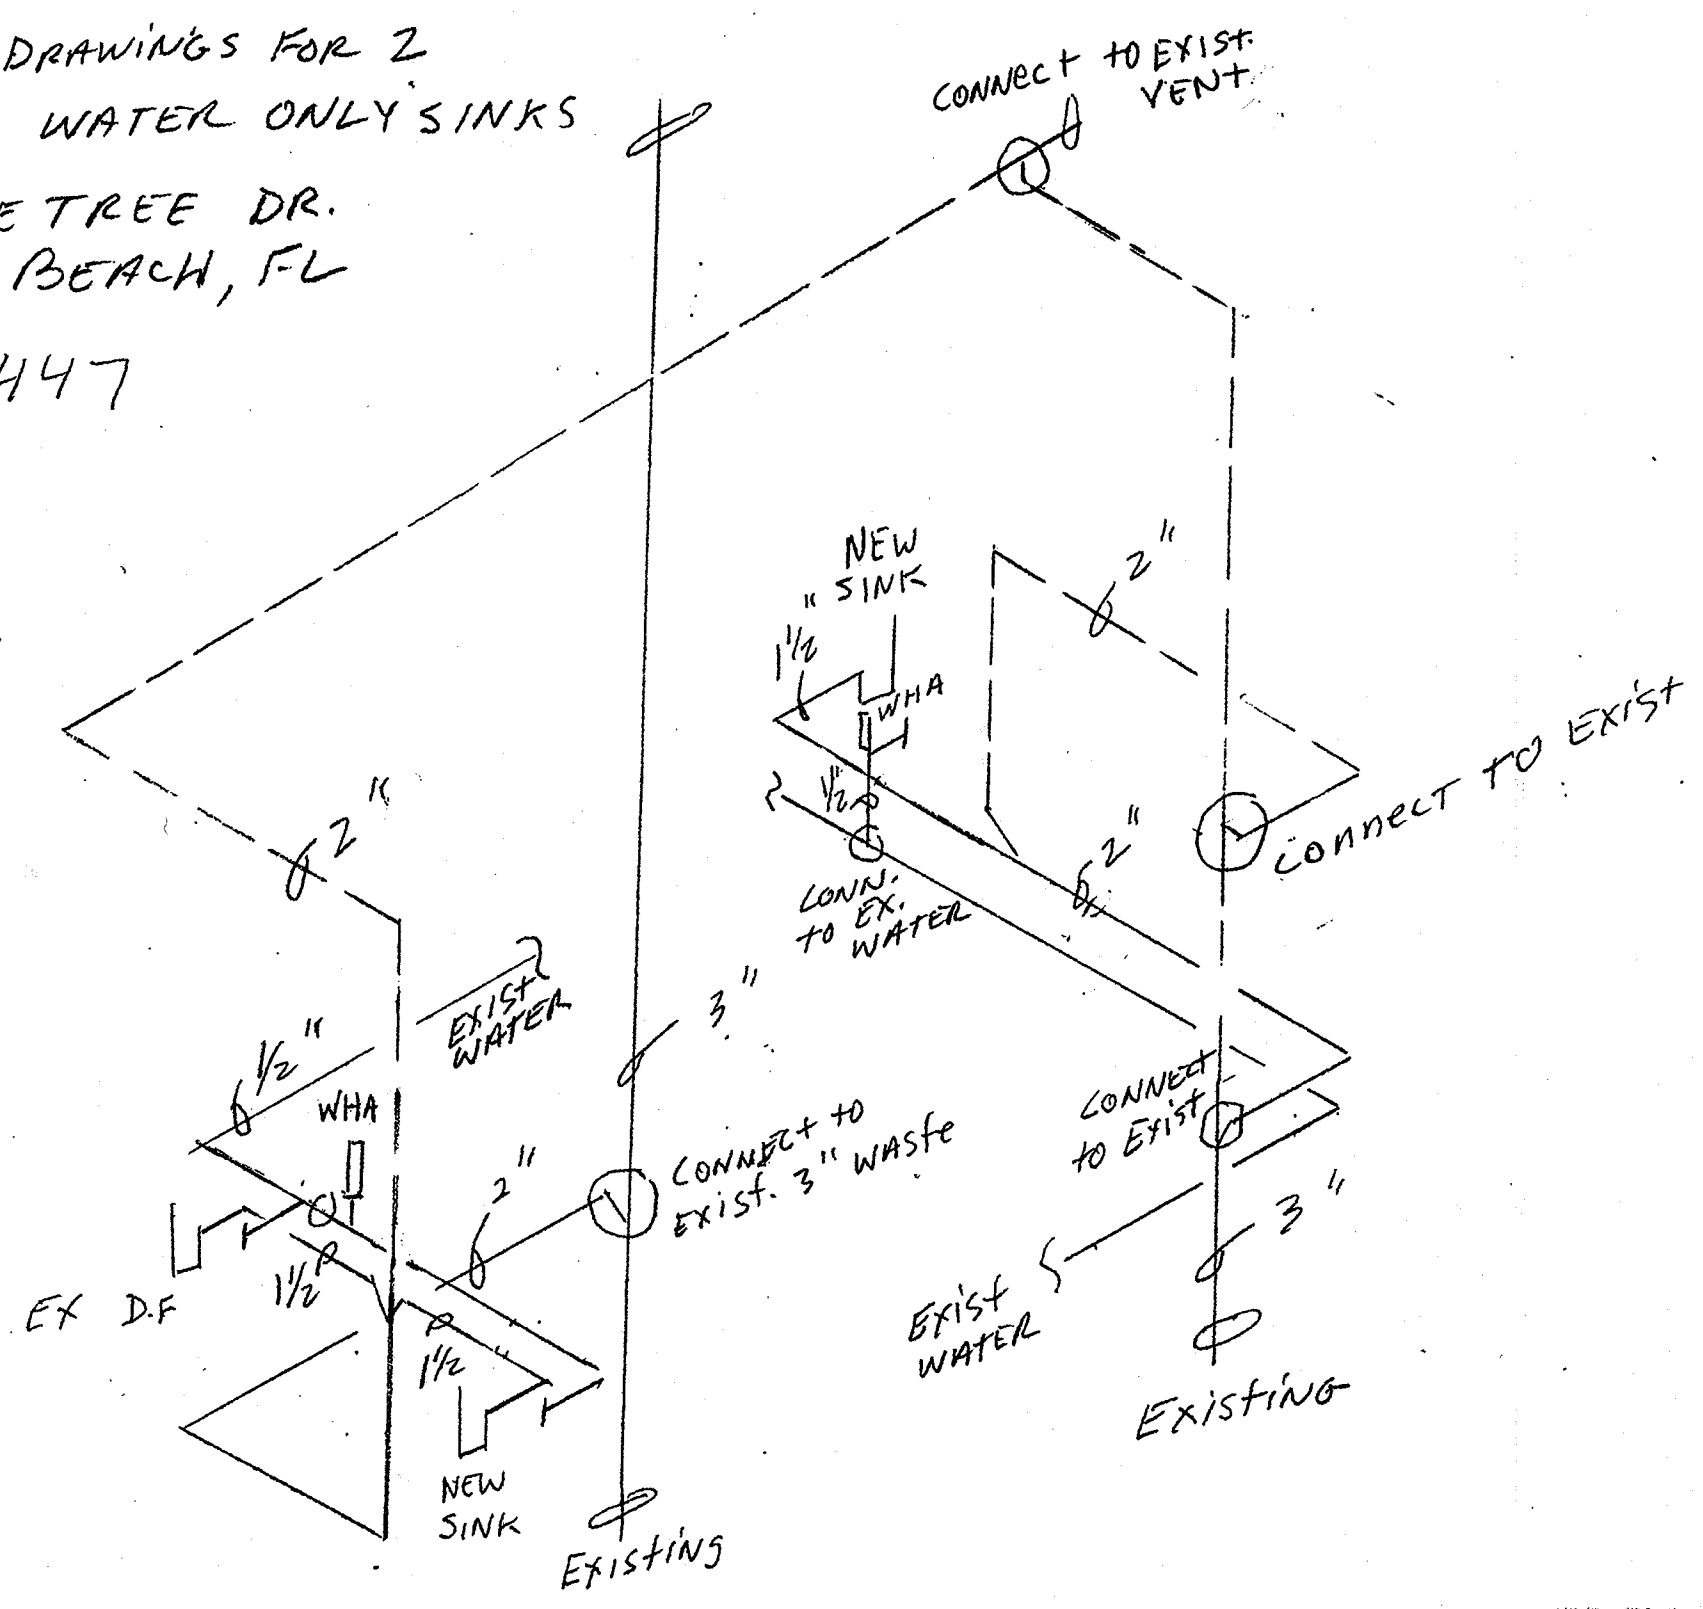 DRAWINGS FOR 2
WATER ONLY SINKS
E TREE DR.
BEACH, FL
447
CONNECT TO EXIST.
VENT
NEW
SINK
1 1/2"
WHA
1/2"
2"
CONNECT TO EXIST
2"
CONN.
TO EX.
WATER
2"
EXIST
WATER
1/2"
WHA
3"
CONNECT TO
EXIST. 3" WASTE
2"
CONNECT
TO EXIST
3"
EX D.F
1 1/2
1 1/2"
NEW
SINK
EXISTING
EXIST
WATER
EXISTING